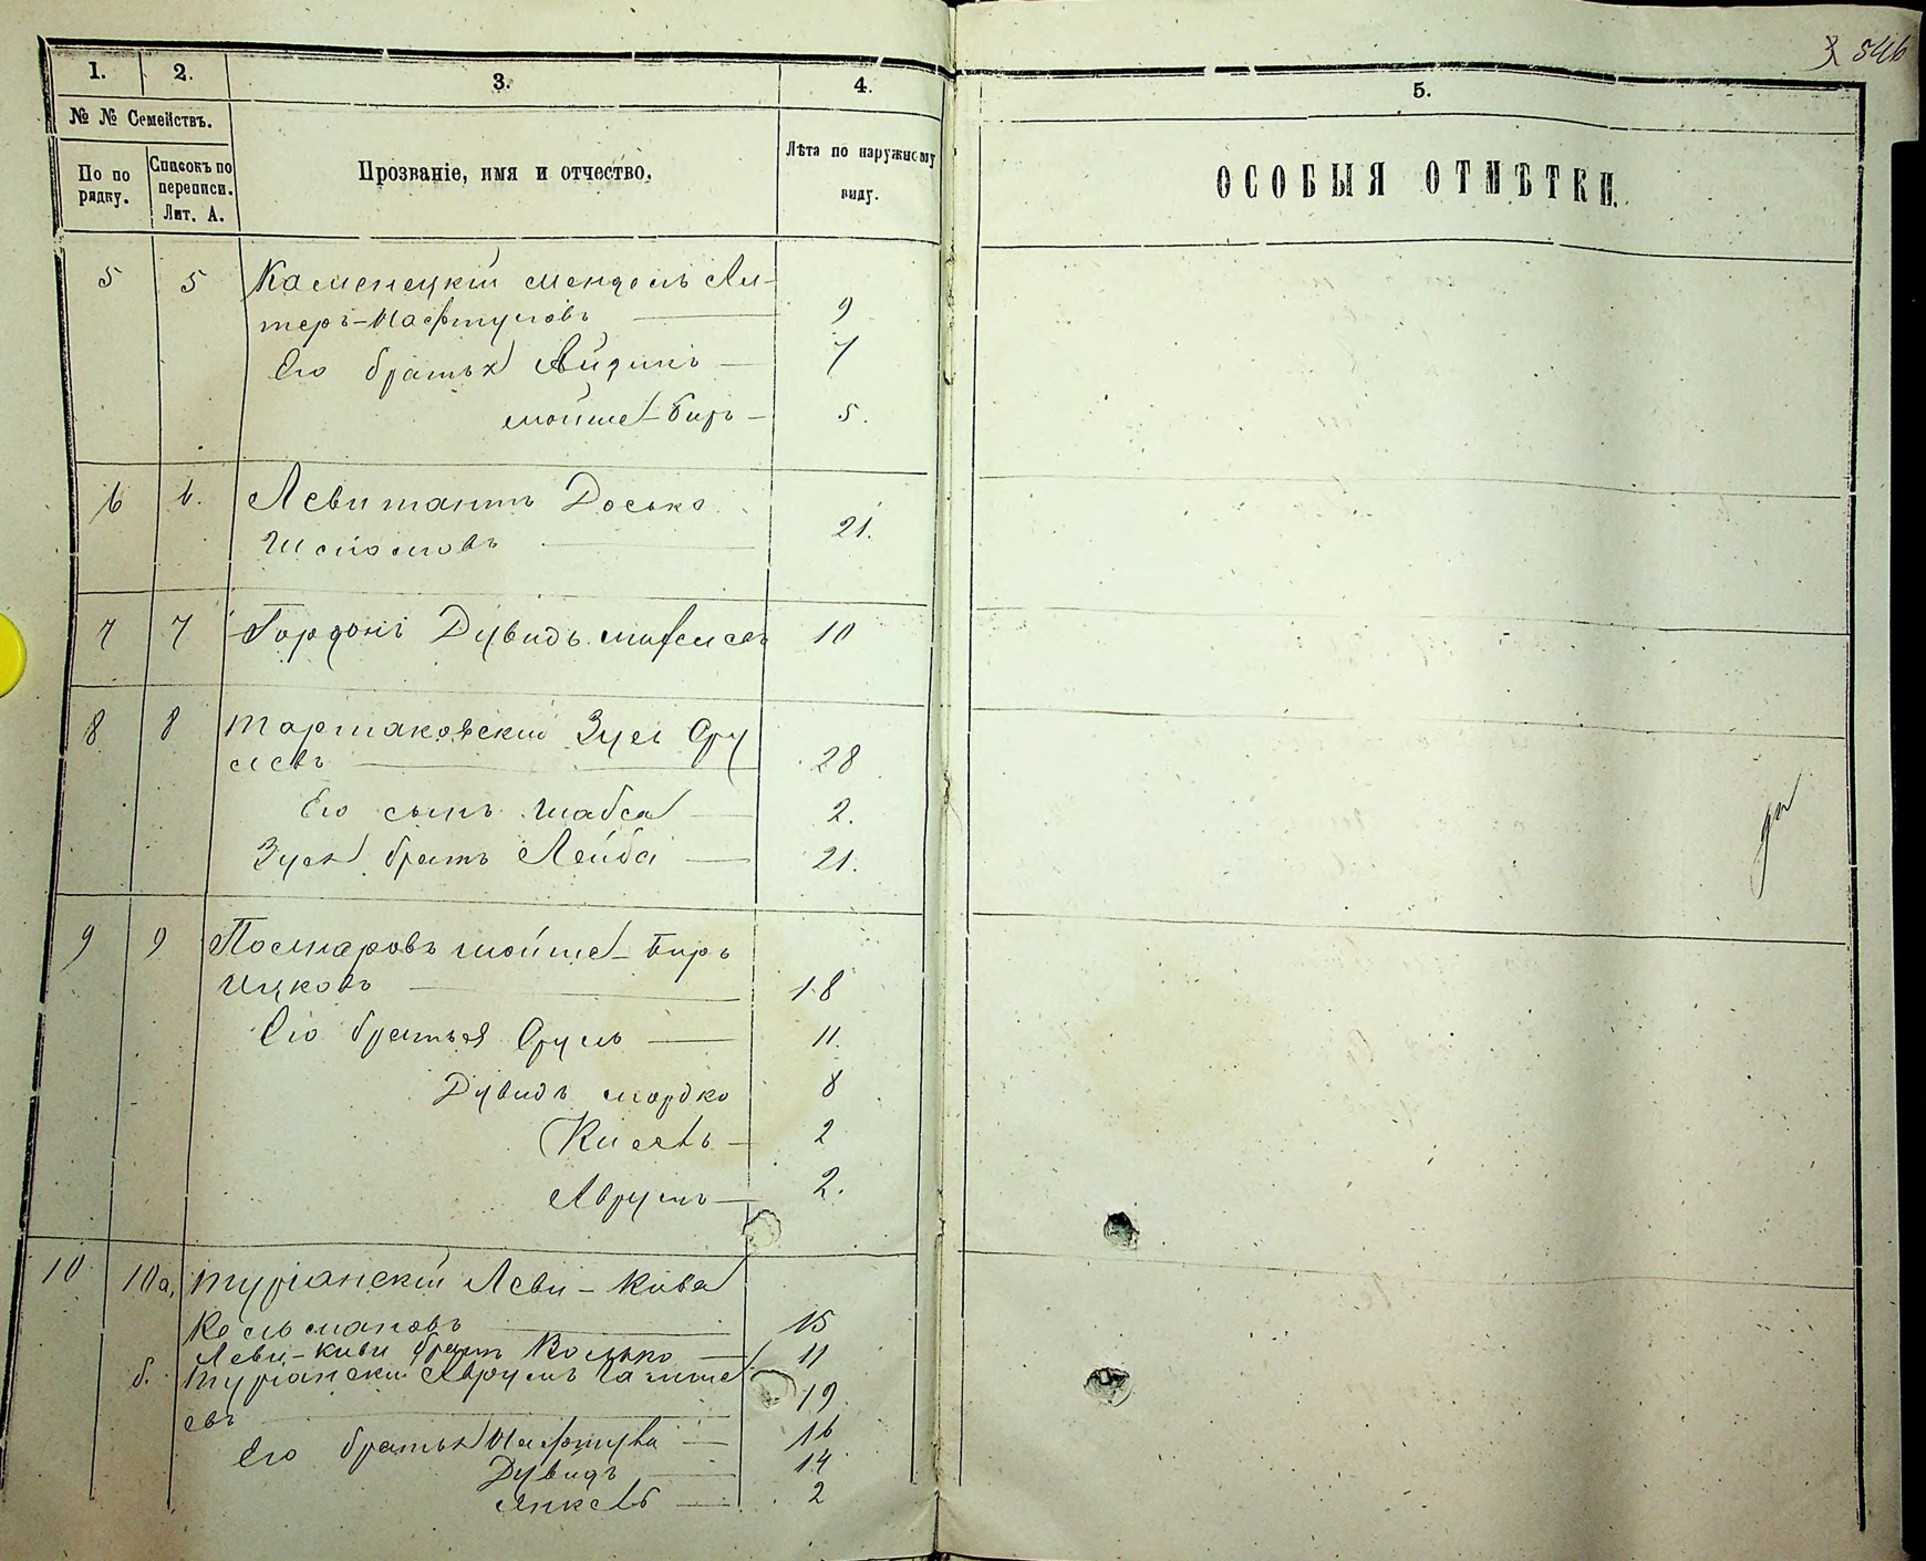 1. 2. 3. 4. 5.
№ № Семействъ.
По по рядку.
Списокъ по переписи. Лит. А.
Прозваніе, имя и отчество.
Лѣта по наружному виду.
ОСОБЫЯ ОТМѢТКИ.
546
5 5 Каменецкій Мендель Ал-
теръ-Нафтулов 9
Его братья Айзикъ 7
Мойше-Биръ 5.
6 6. Левитантъ Доська
21.
7 7 Гордонъ Дувидъ 10
8 8 Тартаковскій Зусь Сру
левъ 28
Его сынъ Шабса 2.
Зуся братъ Лейба 21.
9 9 Посмаровъ Мойше-Биръ
Ицковъ 18
Его братья Сруль 11.
Дувидъ Мордко 8
Кисель 2
Аврумъ 2.
10 10а, Турчанскій Леви-Кива
Кельмановъ 15
Леви-Киви братъ Волько 11
б. Турчанскій Аврумъ
евъ 19
Его братья Нафтула 16
Дувидъ 14
Янкель 2